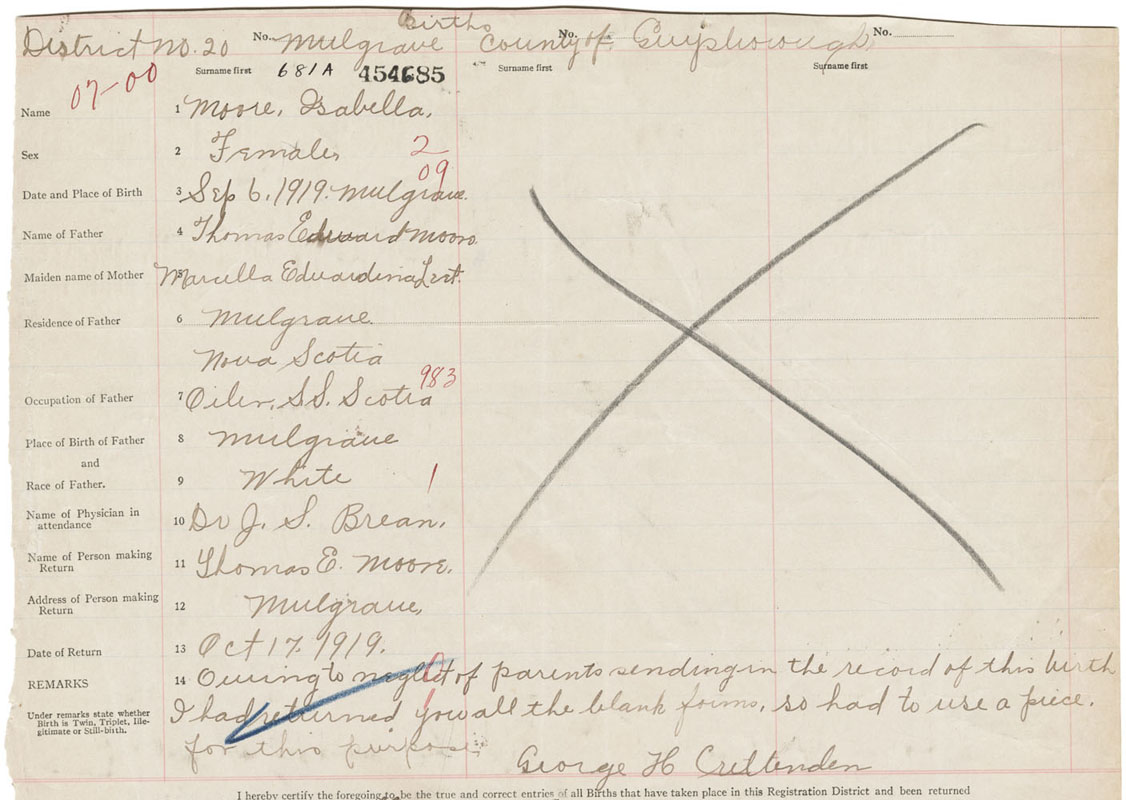 Births
District No. 20 No. Mulgrave County of No. Guysborough No.
Surname first 681A 454685 Surname first Surname first
07-00
Name 1 Moore, Isabella,
Sex 2 Female, 2
09
Date and Place of Birth 3 Sep 6, 1919. Mulgrave.
Name of Father 4 Thomas Edward Moore
Maiden name of Mother 5 Marcella Edwardina
Residence of Father 6 Mulgrave
Nova Scotia
983
Occupation of Father 7 Oiler, S.S. Scotia
Place of Birth of Father 8 Mulgrave
and
Race of Father. 9 White 1
Name of Physician in attendance 10 Dr J. S. Brean,
Name of Person making Return 11 Thomas E. Moore,
Address of Person making Return 12 Mulgrave,
Date of Return 13 Oct 17. 1919.
REMARKS 14 Owing to neglect of parents sending in the record of this birth
Under remarks state whether Birth is Twin, Triplet, Ille-gitimate or Still-birth. I had returned you all the blank forms, so had to use a piece.
for this purpose
George H Crittenden
I hereby certify the foregoing to be the true and correct entries of all Births that have taken place in this Registration District and been returned